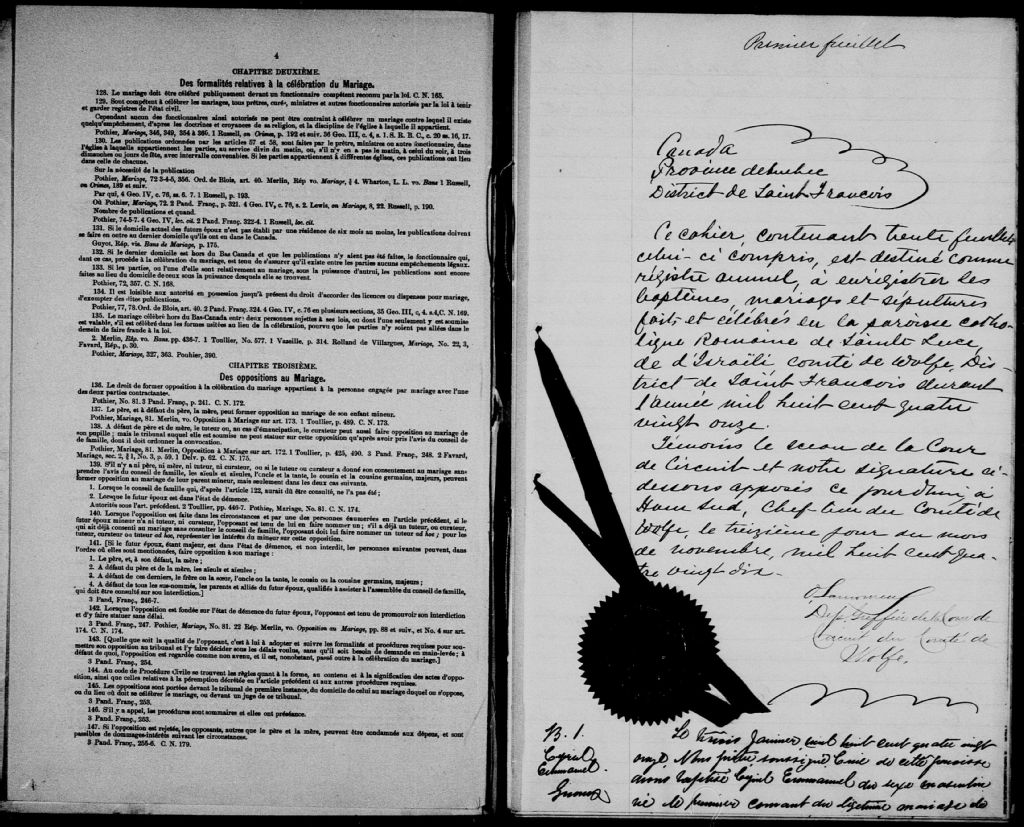 4
CHAPITRE DEUXIÈME.
Des formalités relatives à la célébration du Mariage.
128. Le mariage doit être célébré publiquement devant un fonctionnaire compétent reconnu par la loi. C. N. 165.
129. Sont compétent à célébrer les mariages, tous prêtres, curés, ministres et autres fonctionnaires autorisés par la loi à tenir
et garder registres de l'état civil.
Cependant aucun des fonctionnaires ainsi autorisés ne peut être contraint à célébrer un mariage contre lequel il existe
quelqu'empêchement, d'après les doctrines et croyances de sa religion, et la discipline de l'église à laquelle il appartient.
Pothier, Mariage, 346, 349, 354 à 360. 1 Russell, on Crimes, p. 192 et suiv. 36 Geo. III, c. 4, s. 1. S. R. B. C., c. 20 ss. 16, 17.
130. Les publications ordonnées par les articles 57 et 58, sont faites par le prêtre, ministre ou autre fonctionnaire, dans
l'église à laquelle appartiennent les parties, au service divin du matin, ou, s'il n'y en a pas le matin, à celui du soir, à trois
dimanches ou jours de fête, avec intervalle convenables. Si les parties appartiennent à différentes églises, ces publications ont lieu
dans celle de chacune.
Sur la nécessité de la publication
Pothier, Mariage, 72 3-4-5, 356. Ord. de Blois, art. 40. Merlin, Rép vo. Mariage, § 4. Wharton, L. L. vo. Bans 1 Russell,
on Crimes, 189 et suiv.
Par qui, 4 Geo. IV, c. 76, ss. 6. 7. 1 Russell, p. 193.
Où Pothier, Mariage, 72. 2 Pand. Franç., p. 321. 4 Geo. IV, c. 76, s. 2. Lewis, on Mariage, 8, 22. Russell, p. 190.
Nombre de publications et quand.
Pothier, 74-5-7. 4 Geo. IV, loc. cit. 2 Pand. Franç. 322-4. 1 Russell, loc. cit.
131. Si le domicile actuel des futurs époux n'est pas établi par une résidence de six mois au moins, les publications doivent
se faire en outre au dernier domicile qu'ils ont eu dans le Canada.
Guyot, Rép. vis. Bans de Mariage, p. 175.
132. Si le dernier domicile est hors du Bas Canada et que les publications n'y aient pas été faites, le fonctionnaire qui,
dans ce cas, procède à la célébration du mariage, est tenu de s'assurer qu'il existe entre les parties aucuns empêchements légaux.
133. Si les parties, ou l'une d'elles sont relativement au mariage, sous la puissance d'autrui, les publications sont encore
faites au lieu du domicile de ceux sous la puissance desquels elle se trouvent.
Pothier, 72, 357. C. N. 168.
134. Il est loisible aux autorité en possession jusqu'à présent du droit d'accorder des licences ou dispenses pour mariage,
d'exempter des dites publications.
Pothier, 77, 78. Ord. de Blois, art. 40. 2 Pand. Franç. 324. 4 Geo. IV, c. 76 en plusieurs sections, 35 Geo. III, c, 4. s.4,C. N. 169.
135. Le mariage célébré hors du Bas-Canada entre deux personnes sujettes à ses lois, ou dont l'une seulement y est soumise
est valable, s'il est célébré dans les formes usitées au lieu de la célébration, pourvu que les parties n'y soient pas allées dans le
dessein de faire fraude à la loi.
2. Merlin, Rép. vo. Bans. pp. 436-7. 1 Toullier, No. 577. 1 Vazeille, p. 314. Rolland de Villargues, Mariage, No. 22, 3,
Favard, Rép., p. 30.
Pothier, Mariage, 327, 363. Pouhier, 390.
CHAPITRE TROISIÈME.
Des oppositions au Mariage.
136. Le droit de former opposition à la célébration du mariage appartient à la personne engagée par mariage avec l'une
des deux parties contractantes.
Pothier, No. 81. 3 Pand. Franç., p. 241. C. N. 172.
137. Le père, et à défaut du père, la mère, peut former opposition au mariage de son enfant mineur.
Pothier, Mariage, 81. Merlin, vo. Opposition à Mariage sur art. 173. 1 Toullier, p. 489. C. N. 173.
138. A défaut de père et de mère, le tuteur ou, au cas d'émancipation, le curateur peut aussi faire opposition au mariage de
son pupille ; mais le tribunal auquel elle est soumise ne peut statuer sur cette opposition qu'après avoir pris l'avis du conseil de
de famille, dont il doit ordonner la convocation.
Pothier, Mariage, 81. Merlin, Opposition à Mariage sur art. 172. 1 Toullier, p. 425, 490. 3 Pand. Franç., 248. 2 Favard,
Mariage, sec. 2, § 1, No. 3, p. 59. 1 Delv. p. 62. C. N. 175.
139. S'il n'y a ni père, ni mère, ni tuteur, ni curateur, ou si le tuteur ou curateur a donné son consentement au mariage sans
prendre l'avis du conseil de famille, les aïeuls et aïeules, l'oncle et la tante, le cousin et la cousine germains, majeurs, peuvent
former opposition au mariage de leur parent mineur, mais seulement dans les deux cas suivants.
1. Lorsque le conseil de famille qui, d'après l'article 122, aurait dû être consulté, ne l'a pas été ;
2. Lorsque le futur époux est dans l'état de démence.
Autorités sous l'art. précédent. 2 Toullier, pp. 446-7. Pothier, Mariage, No. 81. C. N. 174.
140. Lorsque l'opposition est faite dans les circonstances et par une des personnes énumérées en l'article précédent, si le
futur époux mineur n'a ni tuteur, ni curateur, l'opposant est tenu de lui en faire nommer un ; s'il a déjà un tuteur, ou curateur,
qui ait déjà consenti au mariage sans consulter le conseil de famille, l'opposant doit lui faire nommer un tuteur ad hoc ; pour les
tuteur, curateur ou tuteur ad hoc, représenter les intérêts du mineur sur cette opposition.
141. [Si le futur époux, étant majeur, est dans l'état de démence, et non interdit, les personnes suivantes peuvent, dans
l'ordre où elles sont mentionnées, faire opposition à son mariage :
1. Le père, et, à son défaut, la mère ;
2. A défaut du père et de la mère, les aïeuls et aïeules ;
3. A défaut de ces derniers, le frère ou la sœur, l'oncle ou la tante, le cousin ou la cousine germains, majeurs ;
4. A défaut de tous les sus-nommés, les parents et alliés du futur époux, qualifiés à assister à l'assemblée du conseil de famille,
qui doit être consulté sur son interdiction.]
3 Pand, Franç., 246-7.
142. Lorsque l'opposition est fondée sur l'état de démence du futur époux, l'opposant est tenu de promouvoir son interdiction
et d'y faire statuer sans délai.
3 Pand. Franç., 247. Pothier, Mariage, No. 81. 22 Rép. Merlin, vo. Opposition au Mariage, pp. 88 et suiv., et No. 4 sur art.
174. C. N. 174.
143. [Quelle que soit la qualité de l'opposant, c'est à lui à adopter et suivre les formalités et procédures requises pour sou-
mettre son opposition au tribunal et l'y faire décider sous les délais voulus, sans qu'il soit besoin de demande en main-levée ; à
défaut de quoi, l'opposition est regardée comme non avenu, et il est, nonobstant, passé outre à la célébration du mariage.]
3 Pand. Franç., 254.
144. Au code de Procédure Civile se trouvent les règles quant à la forme, au contenu et à la signification des actes d'oppo-
sition, ainsi que celles relatives à la péremption décrétée en l'article précédent et aux autres procédures requises.
145. Les oppositions sont portées devant le tribunal de première instance, du domicile de celui au mariage duquel on s'oppose,
ou du lieu où doit se célébrer le mariage, ou devant un juge de ce tribunal.
3 Pand. Franç., 253.
146. S'il y a appel, les procédures sont sommaires et elles ont préséance.
3 Pand. Franç., 263.
147. Si l'opposition est rejetée, les opposants, autres que le père et la mère, peuvent être condamnés aux dépens, et sont
passibles de dommages-intérêts suivant les circonstances.
3 Pand. Franç., 255-6. C. N. 179.
4
Premier feuillet
Canada
Province de Québec
District de Saint-Francois
Ce cahier, contenant trente feuillets
celui-ci compris, est destiné comme
régistre annuel, à enrégistrer les
baptêmes, mariages et sépultures
faits et célébrés en la paroisse catho-
lique Romaine de Sainte Luce
de d'Israëli comté de Wolfe, Dis-
trict de Saint Francois durant
l'année mil huit cent quatre
vingt onze.
Témoins le sceau de la Cour
de Circuit et notre signature ci-
dessous apposés ce jourd'hui, à
Ham Sud, Chef lieu du Comté de
Wolfe, le treizième jour du mois
de novembre, mil huit cent qua-
tre vingt dix.
Dép. Greffier de la Cour de
Circuit du Comté de
Wolfe.
B. 1.
Cyriel
Emmanuel
Le trois Janvier, mil huit cent quatre vingt
onze, Nous prêtre soussigné Curé de cette paroisse
avons baptisé Cyriel Emmanuel du sexe masculin
né le premier courant du légitime mariage de